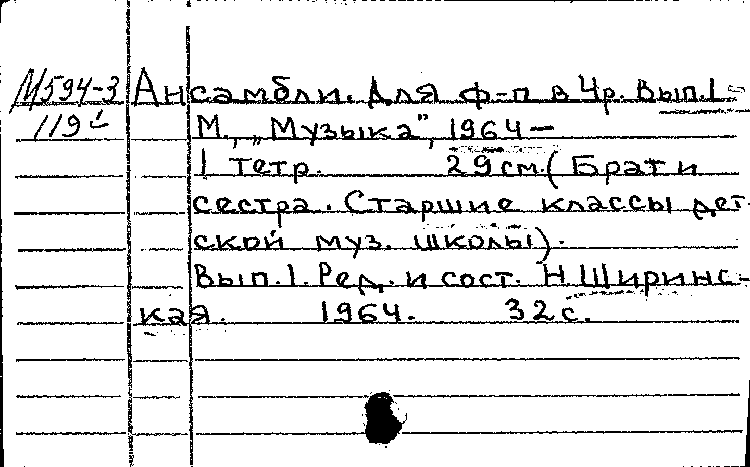 М594-3 Ансамбли. Для ф-п в 4р. Вып.1-
119 М., „Музыка", 1964 —
1 тетр. 29см. (Брат и
сестра. Старшие классы дет-
ской муз. школы).
Вып.1. Ред. и сост. Н.Ширинс-
кая. 1964. 32с.